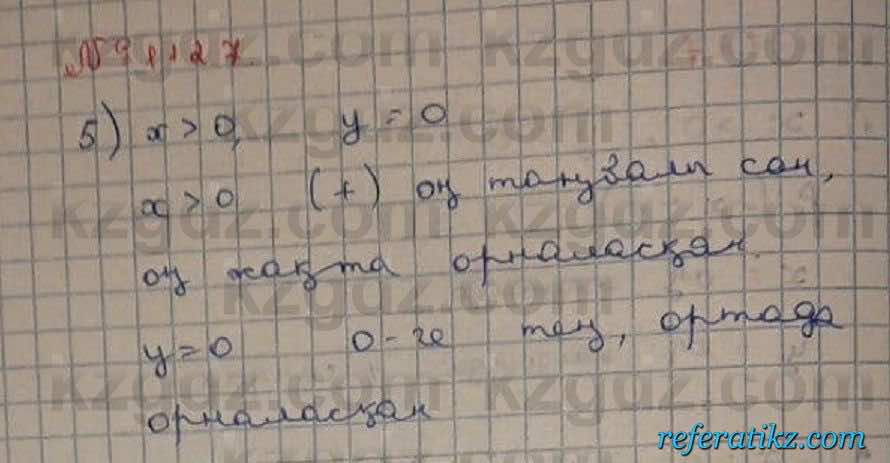 5) x > 0, y = 0
x > 0 (+) оң таңбалы сан,
оң жақта орналасқан.
y = 0 0-ге тең, ортада
орналасқан
referatikz.com